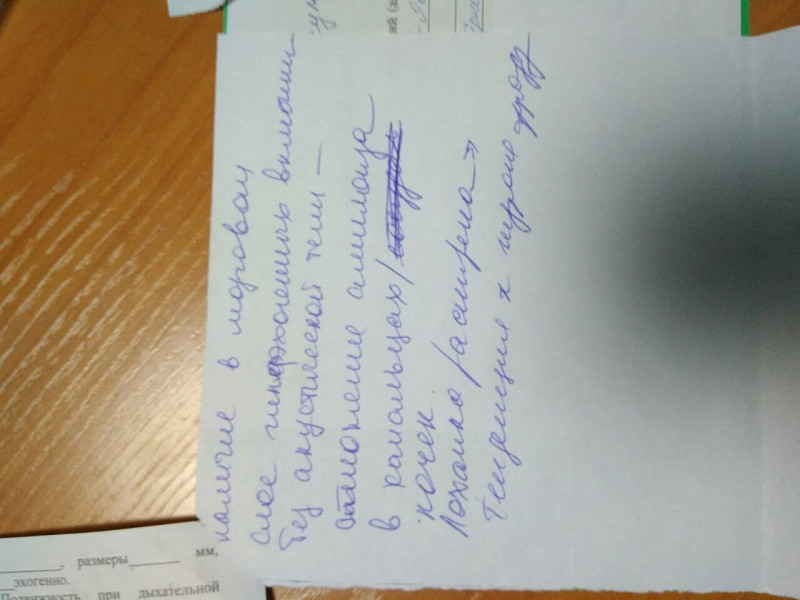 наличие в мозговом
слое гиперэхогенных включений
без акустической тени –
отложение амилоида
в канальцах
почек.
Лоханка расширена →
тенденция к гидронефрозу
_______, размеры_______ мм,
эхогенно.
Подвижность при дыхательной